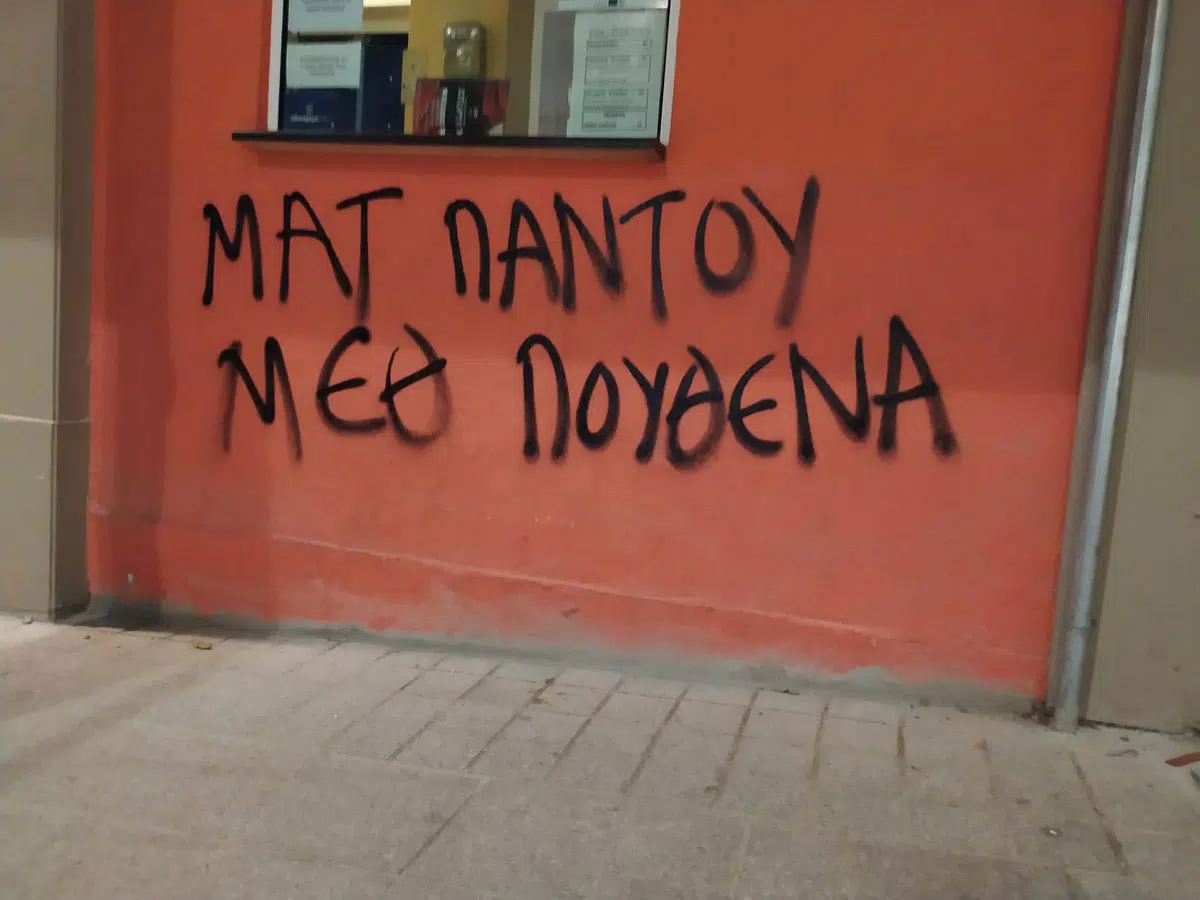 ΜΑΤ ΠΑΝΤΟΥ
ΜΕΘ ΠΟΥΘΕΝΑ